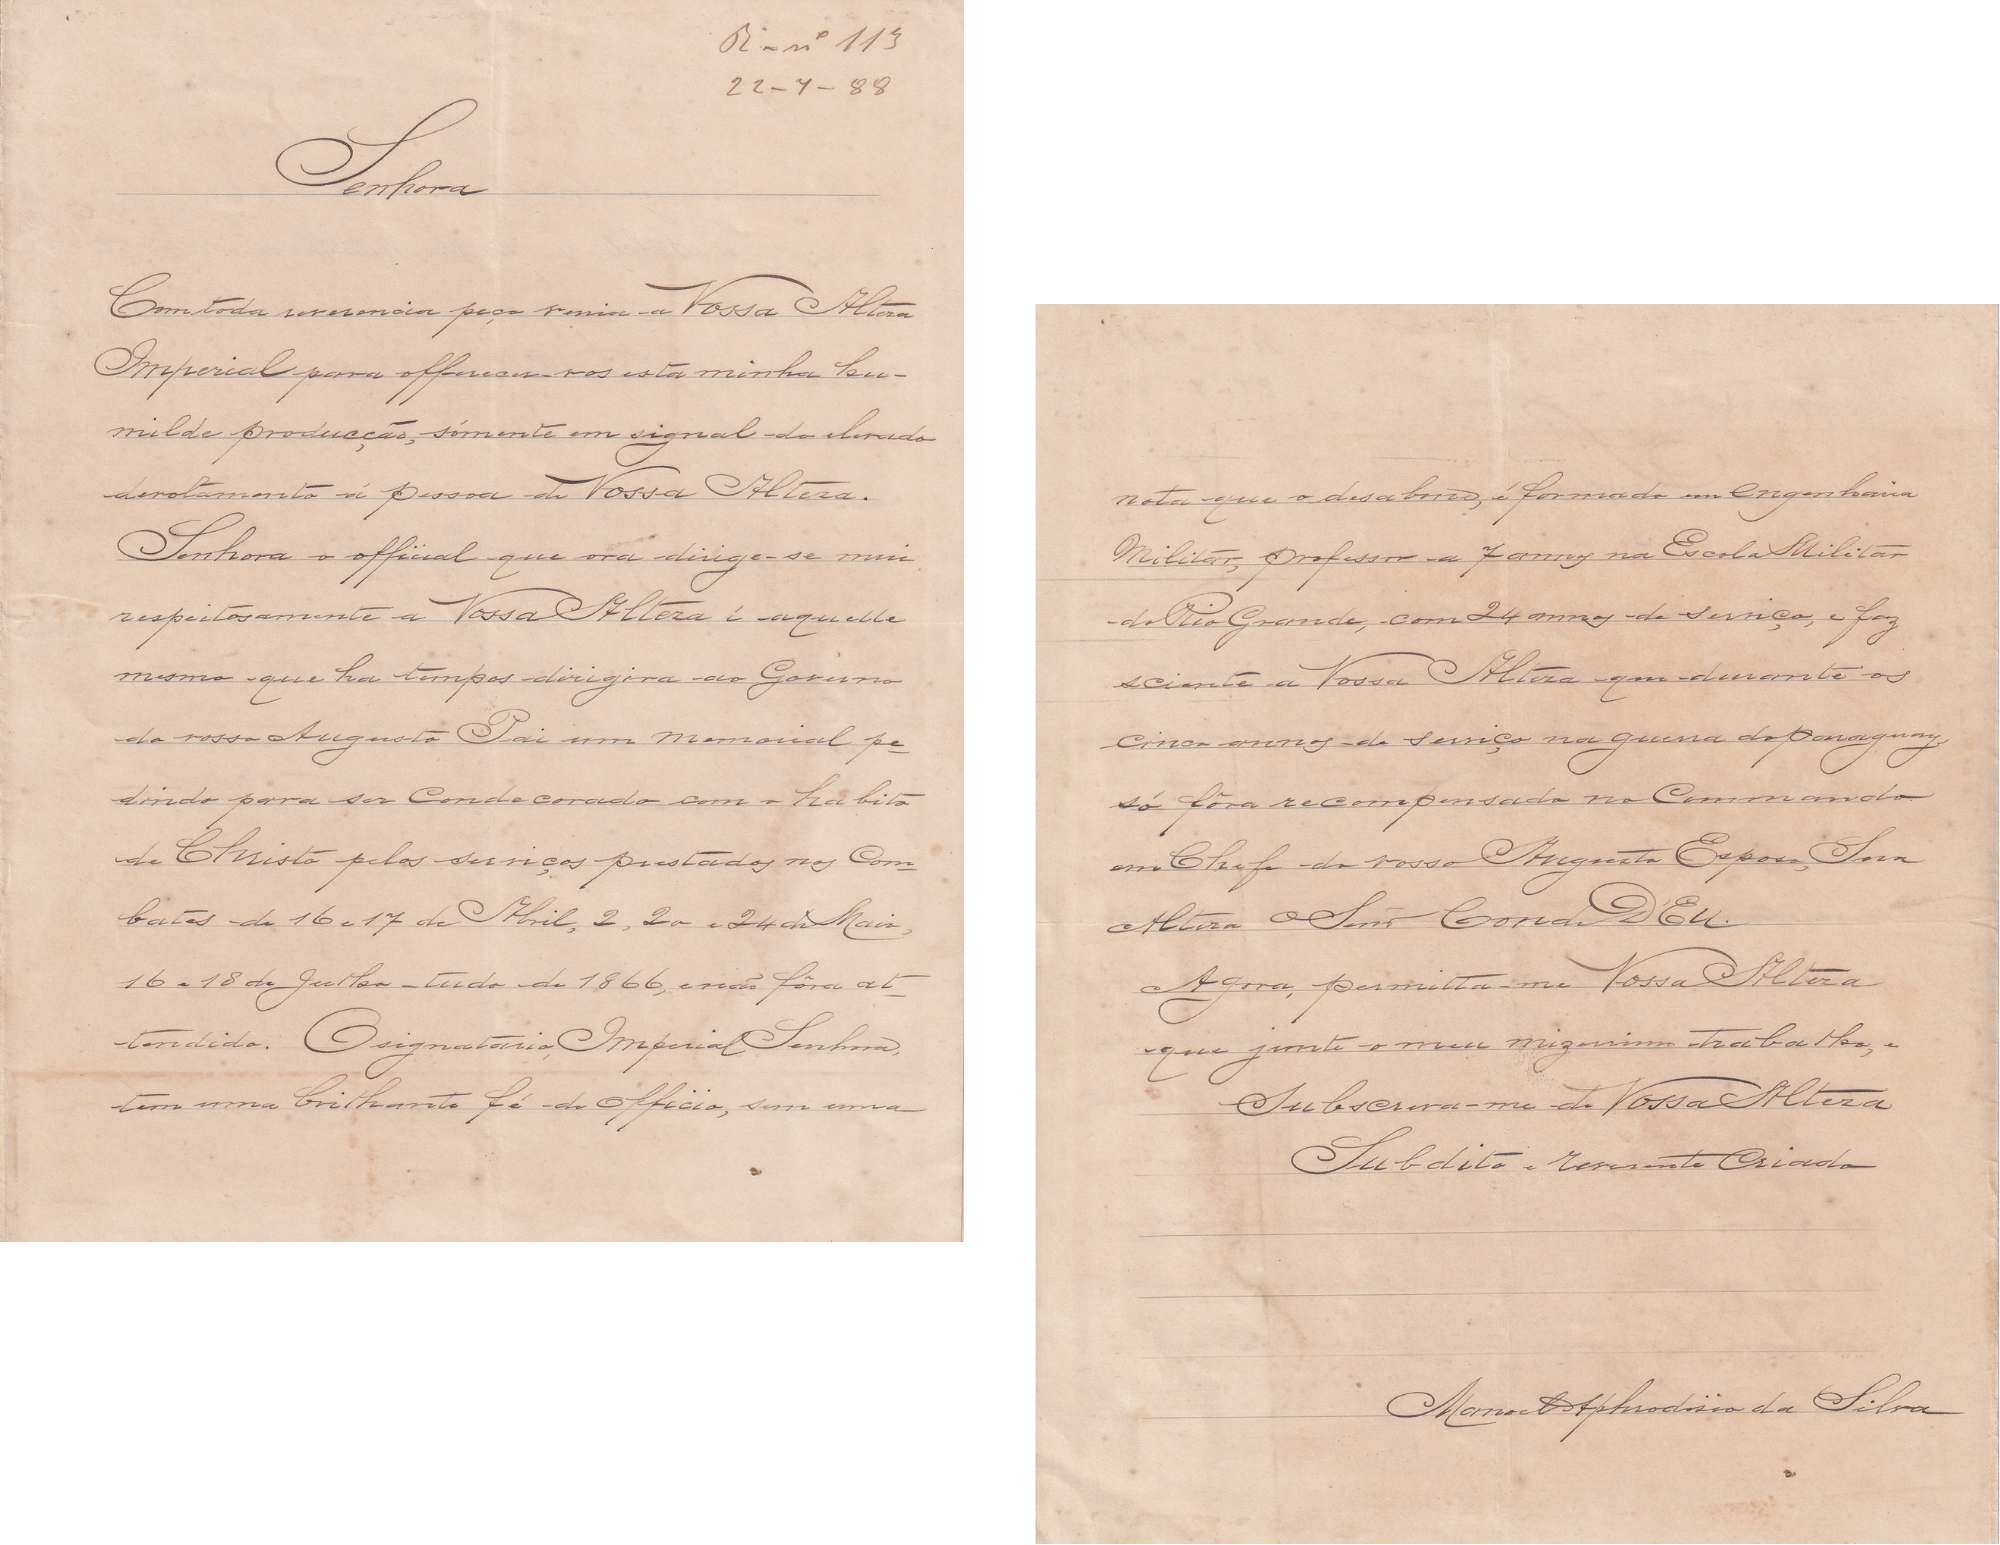 nº 113
22-4-88
Senhora
Com toda reverencia peço venia a Vossa Alteza
Imperial para offerecer-vos esta minha hu-
milde producção, sómente em signal do elevado
devotamento á pessoa de Vossa Alteza.
Senhora o official que ora dirige-se mui
respeitosamente a Vossa Alteza é aquelle
mesmo que ha tempos dirigira ao Governo
do vosso Augusto Pai um memorial pe-
dindo para ser Condecorado com o habito
de Christo pelos serviços prestados nos Com-
bates de 16 e 17 de Abril, 2, 20 e 24 de Maio,
16 e 18 de Julho tudo de 1866, e não fôra at-
tendido. O signatario, Imperial Senhora,
tem uma brilhante fé de officio, sem uma
nota que o desabone, é formado em engenharia
Militar, professor a 7 annos na Escola Militar
do Rio Grande, com 24 annos de serviço, e faz
sciente a Vossa Alteza que durante os
cinco annos de serviço na guerra do paraguay,
só fôra recompensado no Commando
em Chefe do vosso Augusto Esposo, Sua
Alteza O Senr Conde D'Eu.
Agora, permitta-me Vossa Alteza
que junte o meu mizerrimo trabalho, e
Subscreva-me de Vossa Alteza
Subdito e reverente Criado
Manoel Aphrodisio da Silva